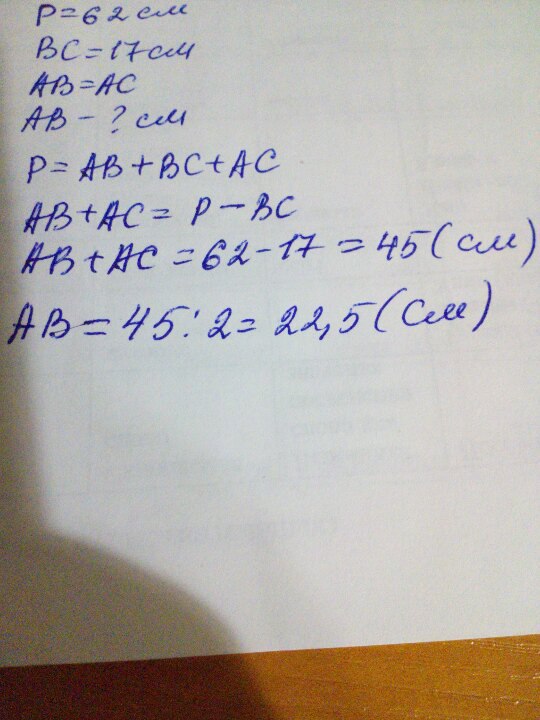 P=62 см
BC=17см
AB=AC
AB-? см
P= AB+BC+AC
AB+AC= P-BC
AB+AC=62-17=45(см)
AB=45:2=22,5(см)